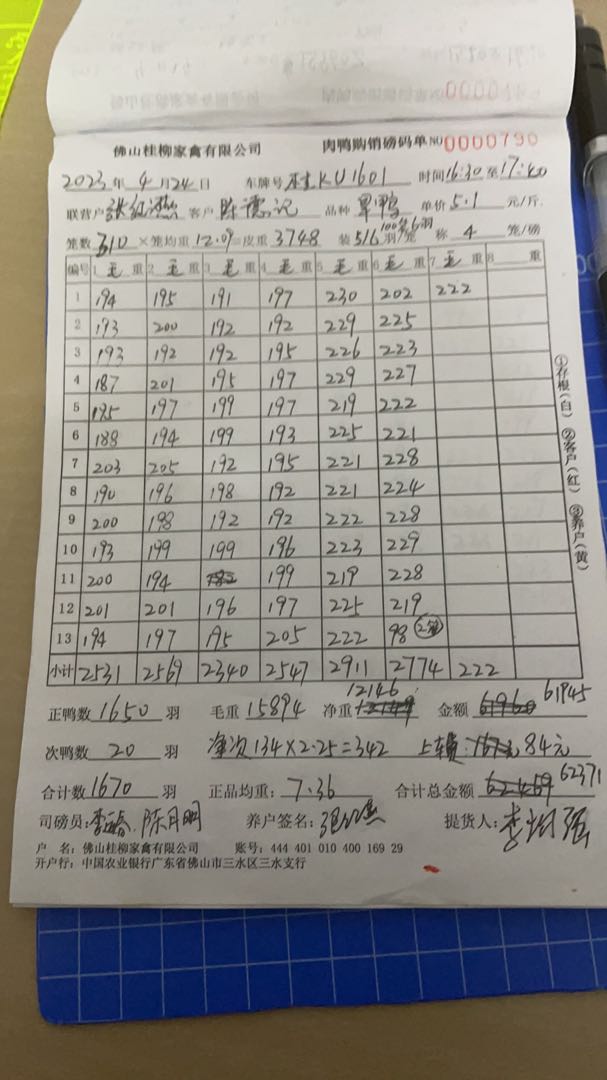 佛山桂柳家禽有限公司 肉鸭购销磅码单 NO 0000790
2023年4月24日 车牌号 桂KU1601 时间16:30至17:40
联营户 客户 陈德记 品种 单价5.1元/斤
笼数310×笼均重12.09=皮重3748 装5/6羽/笼 称4笼/磅
编号 1毛重 2毛重 3毛重 4毛重 5毛重 6毛重 7毛重 8 重
1 194 195 191 197 230 202 222
2 193 200 192 192 229 225
3 193 192 192 195 226 223
4 187 201 195 197 229 227
5 195 197 199 197 219 222
6 188 194 199 193 225 221
7 203 205 192 195 221 228
8 190 196 198 192 221 224
9 200 198 192 192 222 228
10 193 199 199 196 223 229
11 200 194 199 219 228
12 201 201 196 197 225 219
13 194 197 195 205 222 98
小计 2531 2569 2340 2547 2911 2774 222
正鸭数1650羽 毛重15894 净重12146 金额61945
次鸭数20羽 净次134×2.25=342 84元
合计数1670羽 正品均重：7.36 合计总金额62371
司磅员： 陈月明 养户签名： 提货人：李灼强
户 名：佛山桂柳家禽有限公司 账号：444 401 010 400 169 29
开户行：中国农业银行广东省佛山市三水区三水支行
①存根(白) ②客户(红) ③养户(黄)